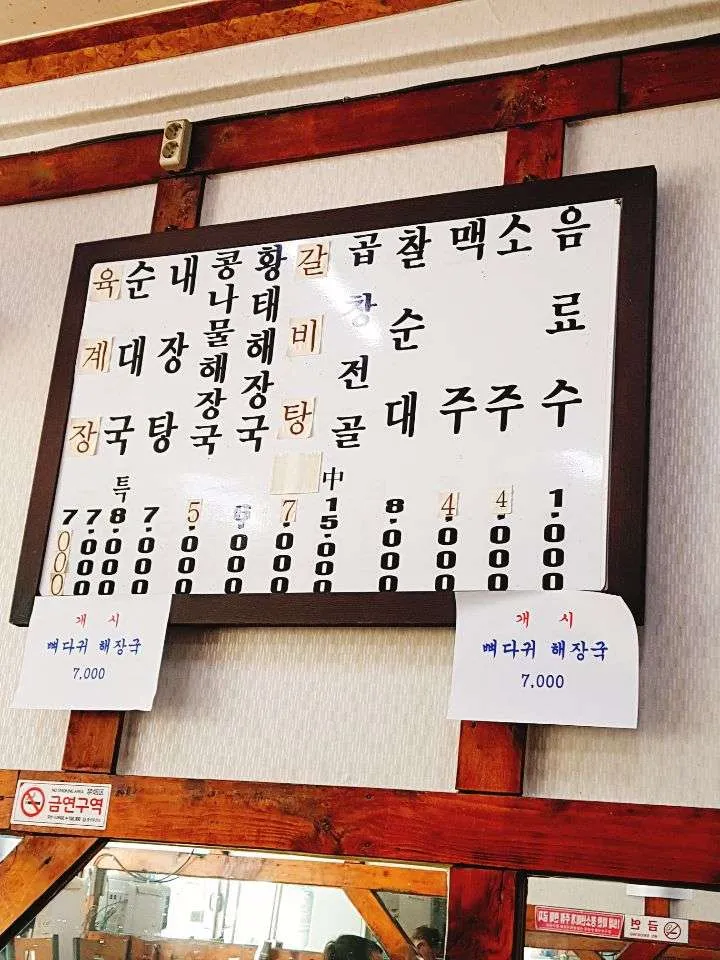 육계장 7000
순대국 7.000
특 8.000
내장탕 7.000
콩나물해장국 5.000
황태해장국 6.000
갈비탕 7.000
곱창전골 中 15.000
찰순대 8.000
맥주 4.000
소주 4.000
음료수 1.000
개 시
뼈다귀 해장국
7,000
개 시
뼈다귀 해장국
7,000
NO SMOKING AREA
금연구역
금 연